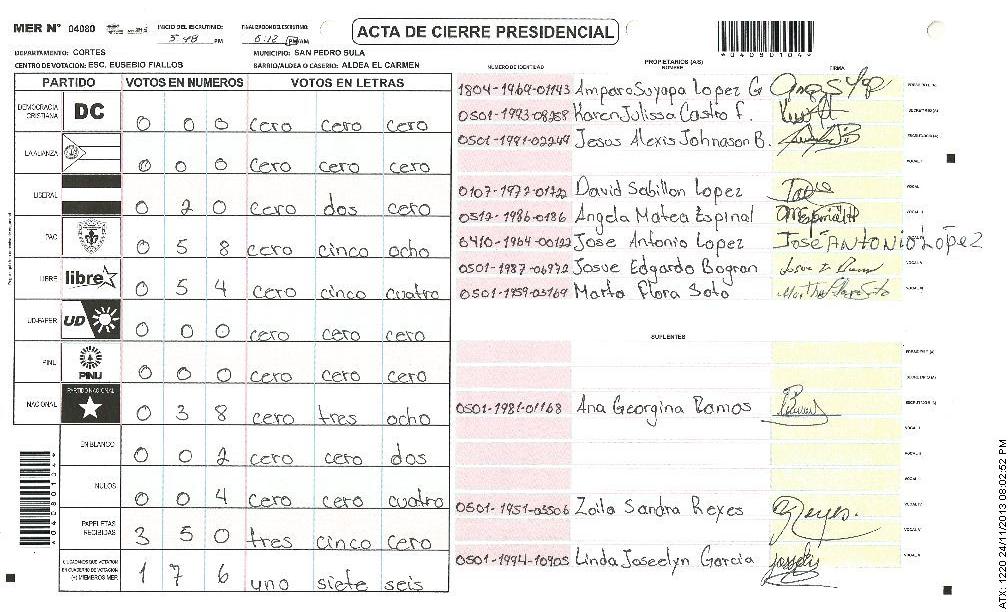 MER Nº 04080
INICIO DEL ESCRUTINIO:
5:48 PM
FINALIZACION DEL ESCRUTINIO:
6:12 PM AM
ACTA DE CIERRE PRESIDENCIAL
*04080104*
DEPARTAMENTO: CORTES
MUNICIPIO: SAN PEDRO SULA
CENTRO DE VOTACION: ESC. EUSEBIO FIALLOS
BARRIO/ALDEA O CASERIO: ALDEA EL CARMEN
PARTIDO VOTOS EN NUMEROS VOTOS EN LETRAS
DEMOCRACIA CRISTIANA DC 0 0 0 cero cero cero
LA ALIANZA 0 0 0 cero cero cero
LIBERAL 0 2 0 cero dos cero
PAC 0 5 8 cero cinco ocho
LIBRE libre 0 5 4 cero cinco cuatro
UD-FAPER UD 0 0 0 cero cero cero
PINU PINU 0 0 0 cero cero cero
NACIONAL PARTIDO NACIONAL 0 3 8 cero tres ocho
EN BLANCO 0 0 2 cero cero dos
NULOS 0 0 4 cero cero cuatro
PAPELETAS RECIBIDAS 3 5 0 tres cinco cero
CIUDADANOS QUE VOTARON EN CUADERNO DE VOTACION (+) MIEMBROS MER 1 7 6 uno siete seis
PROPIETARIOS (AS)
NUMERO DE IDENTIDAD NOMBRE FIRMA
1804-1969-01143 Amparo Suyapa Lopez G PRESIDENTE (A)
0501-1993-08258 Karen Julissa Castro f. SECRETARIO (A)
0501-1991-02249 Jesus Alexis Johnason B. ESCRUTADOR (A)
VOCAL I
0107-1972-01722 David Sabillon Lopez VOCAL
0512-1986-0186 Angela Matea Espinal VOCAL
0410-1964-00122 Jose Antonio Lopez JOSÉ ANTONIO LÓPEZ
0501-1987-06972 Josue Edgardo Bogran VOCAL
0501-1959-03169 Marta Flora Soto VOCAL
SUPLENTES
PRESIDENTE (A)
SECRETARIO (A)
0501-1981-01168 Ana Georgina Ramos ESCRUTADOR (A)
VOCAL I
VOCAL II
VOCAL
0501-1951-03506 Zoila Sandra Reyes Reyes. VOCAL IV
VOCAL V
0501-1994-10905 Linda Joseelyn Garcia VOCAL
*04080104*
ATX: 1220 24/11/2013 08:02:52 PM